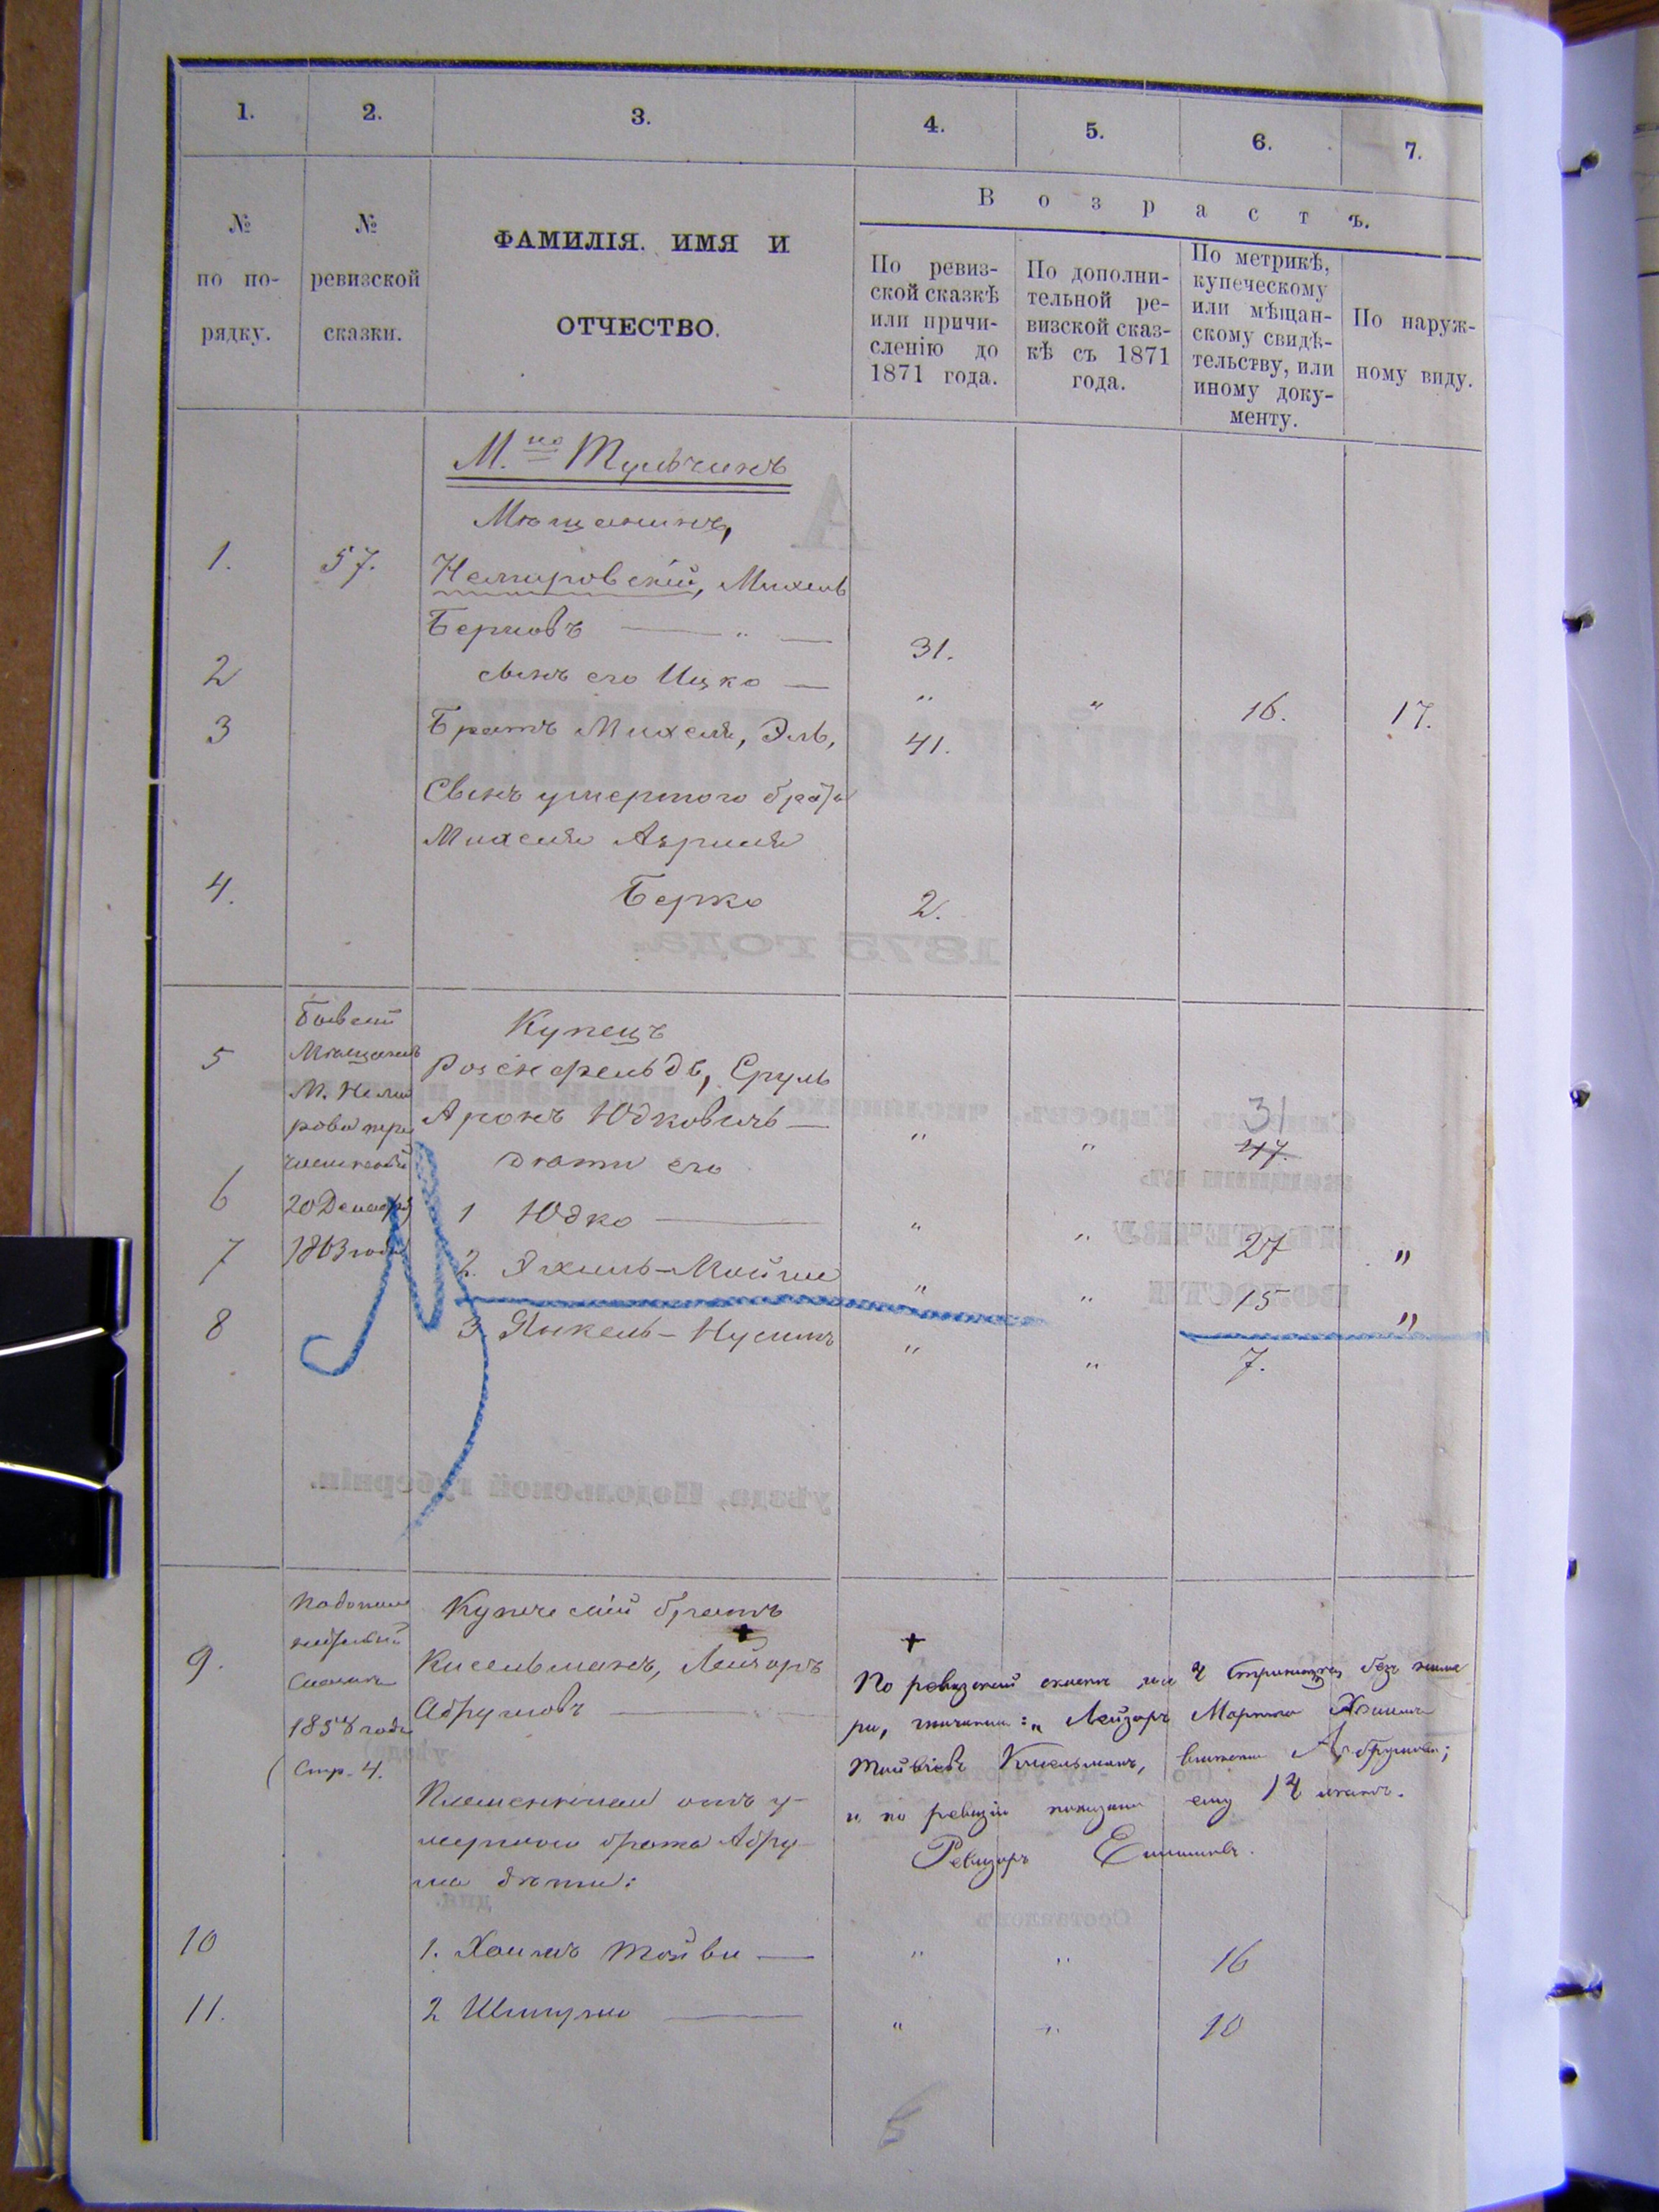 1. 2. 3. 4. 5. 6. 7.
№ по по-рядку.
№ ревизской сказки.
ФАМИЛІЯ. ИМЯ И
ОТЧЕСТВО.
Возрастъ.
По ревиз-
ской сказкѣ
или причи-
сленію до
1871 года.
По дополни-
тельной ре-
визской сказ-
кѣ съ 1871
года.
По метрикѣ,
купеческому
или мѣщан-
скому свидѣ-
тельству, или
иному доку-
менту.
По наруж-
ному виду.
М.но Тульчинъ
Мѣщанинъ,
1. 57. Немировскій, Михель
Берковъ — " — 31.
2 сынъ его Ицко — " " 16. 17.
3 Братъ Михеля, Эль, 41.
Сынъ умершого брата
Михеля
4. Берко 2.
Бывшій
Мѣщанинъ
М. Неми
рова пере
численный
20 Декабря
1863 года
Купецъ
5 Розенфельдъ, Сруль
Аронъ Юдковичъ — " " 31
47.
дѣти его
6 1 Юдко — " " 27 "
7 2. Эхиль-Мойше " " 15 "
8 3 Янкель-Нусинъ " " 7.
По дополни
тельной
сказкѣ
1858 года
Стр. 4.
Купеческій братъ
9. Кисельманъ, Лейзоръ
Абрумовъ —
По ревизской сказкѣ на 4 страницѣ, безъ нуме
ра, значится: „Лейзоръ Мортко Хаимъ
Тойвіевъ Кисельманъ, Абрумова;
и по ревизіи показано ему 14 лѣтъ.
Ревизоръ
Племенники отъ у-
мершого брата Абру-
ма дѣти:
10 1. Хаимъ Тойви — " " 16
11. 2 Шмуль — " " 10